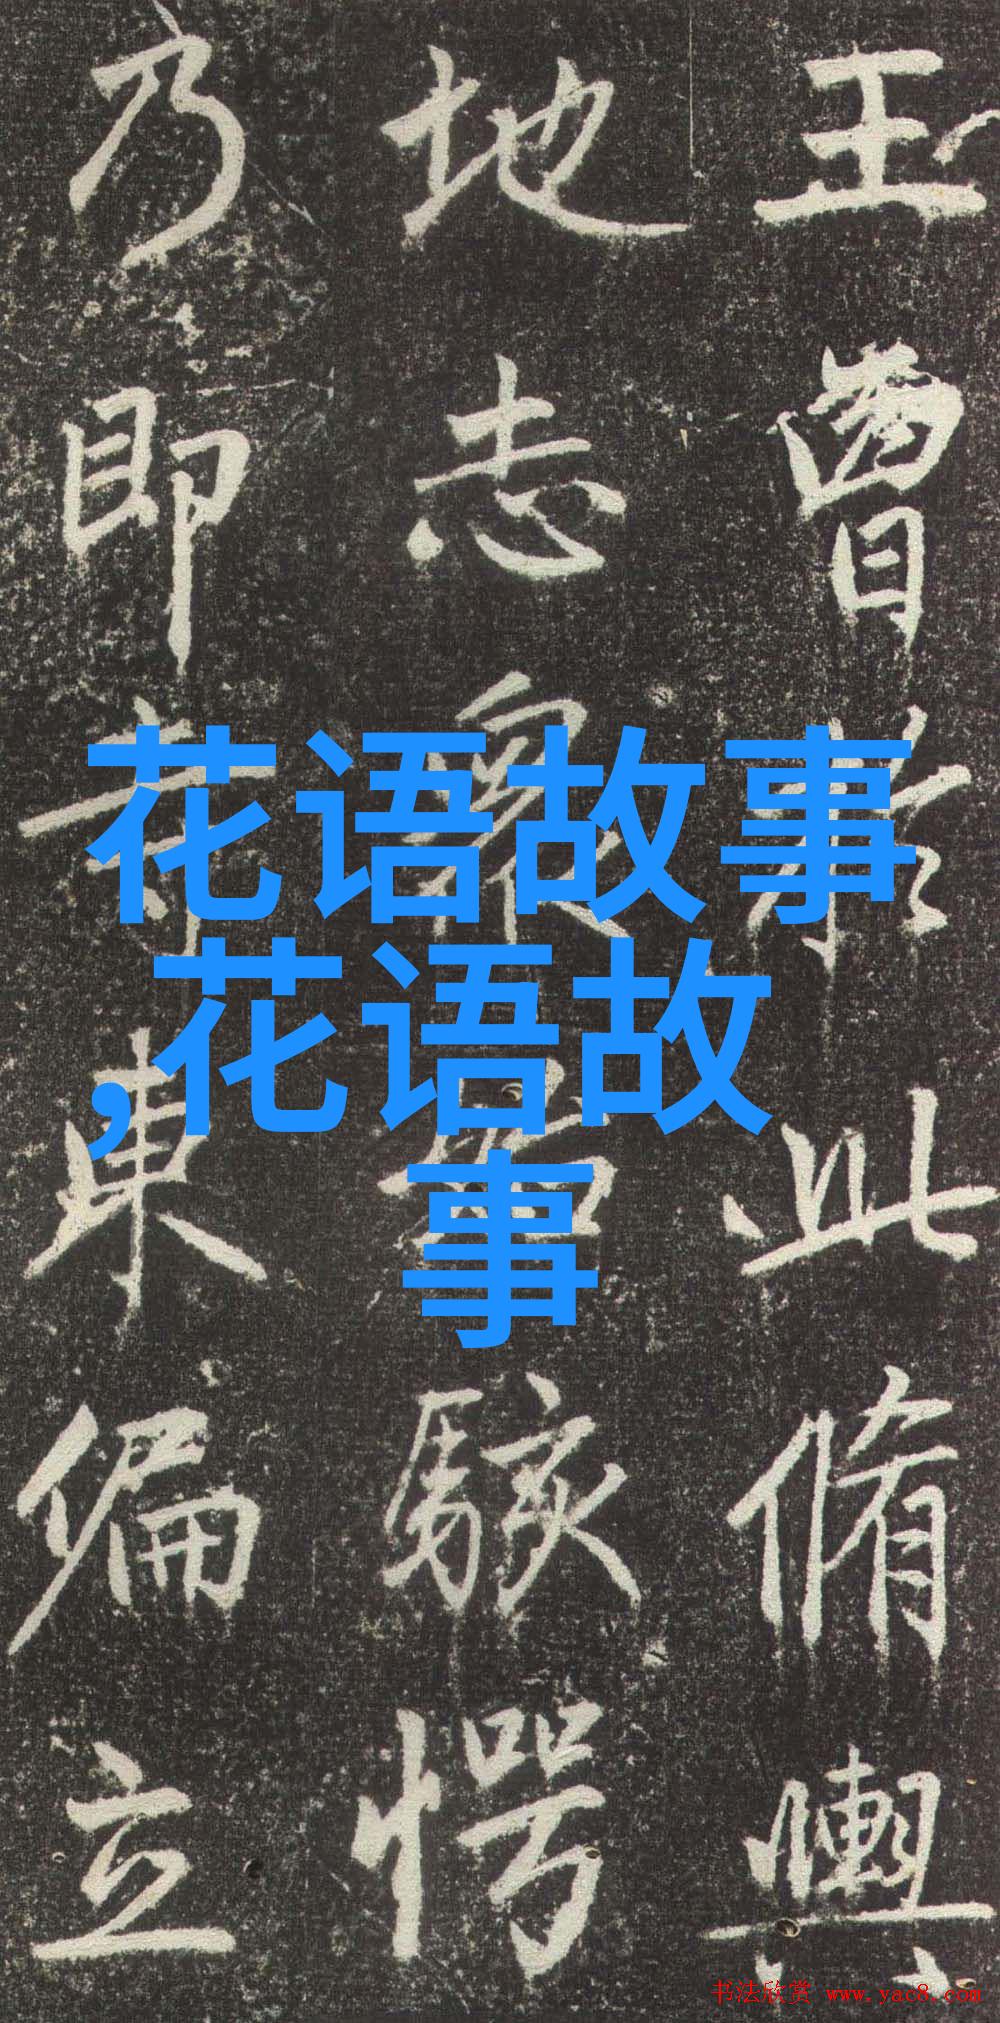 王曹於此脩輿
地志最為駭愕
乃即寺東偏立
花语故事
,花语故
事
书法欣赏 www.yac8.com